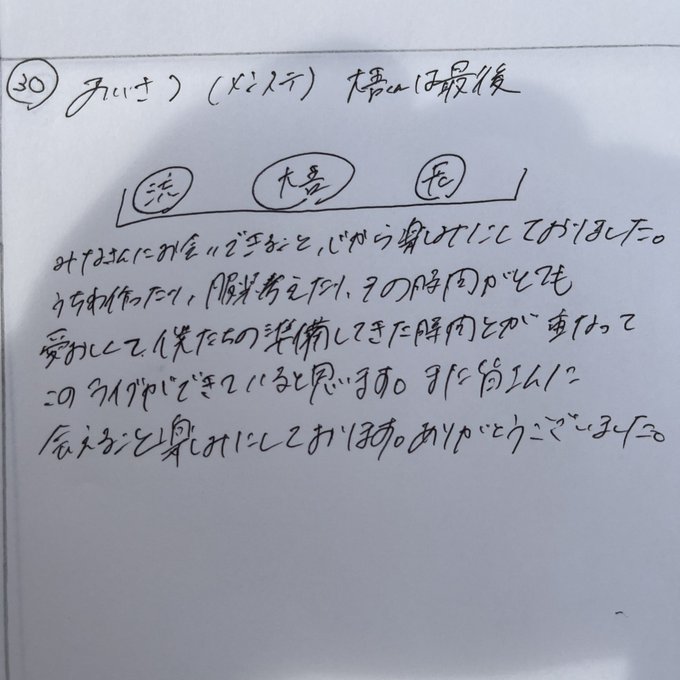 ㉚ あいさつ (メンステ) 大吾くんは最後
流 大吾
みなさんにお会いできること、心から楽しみにしておりました。
うちわ作ったり、服装考えたり、その時間がとても
愛おしくて、僕たちの準備してきた時間とが重なって
このライブができていると思います。また皆さんに
会えること楽しみにしております。ありがとうございました。